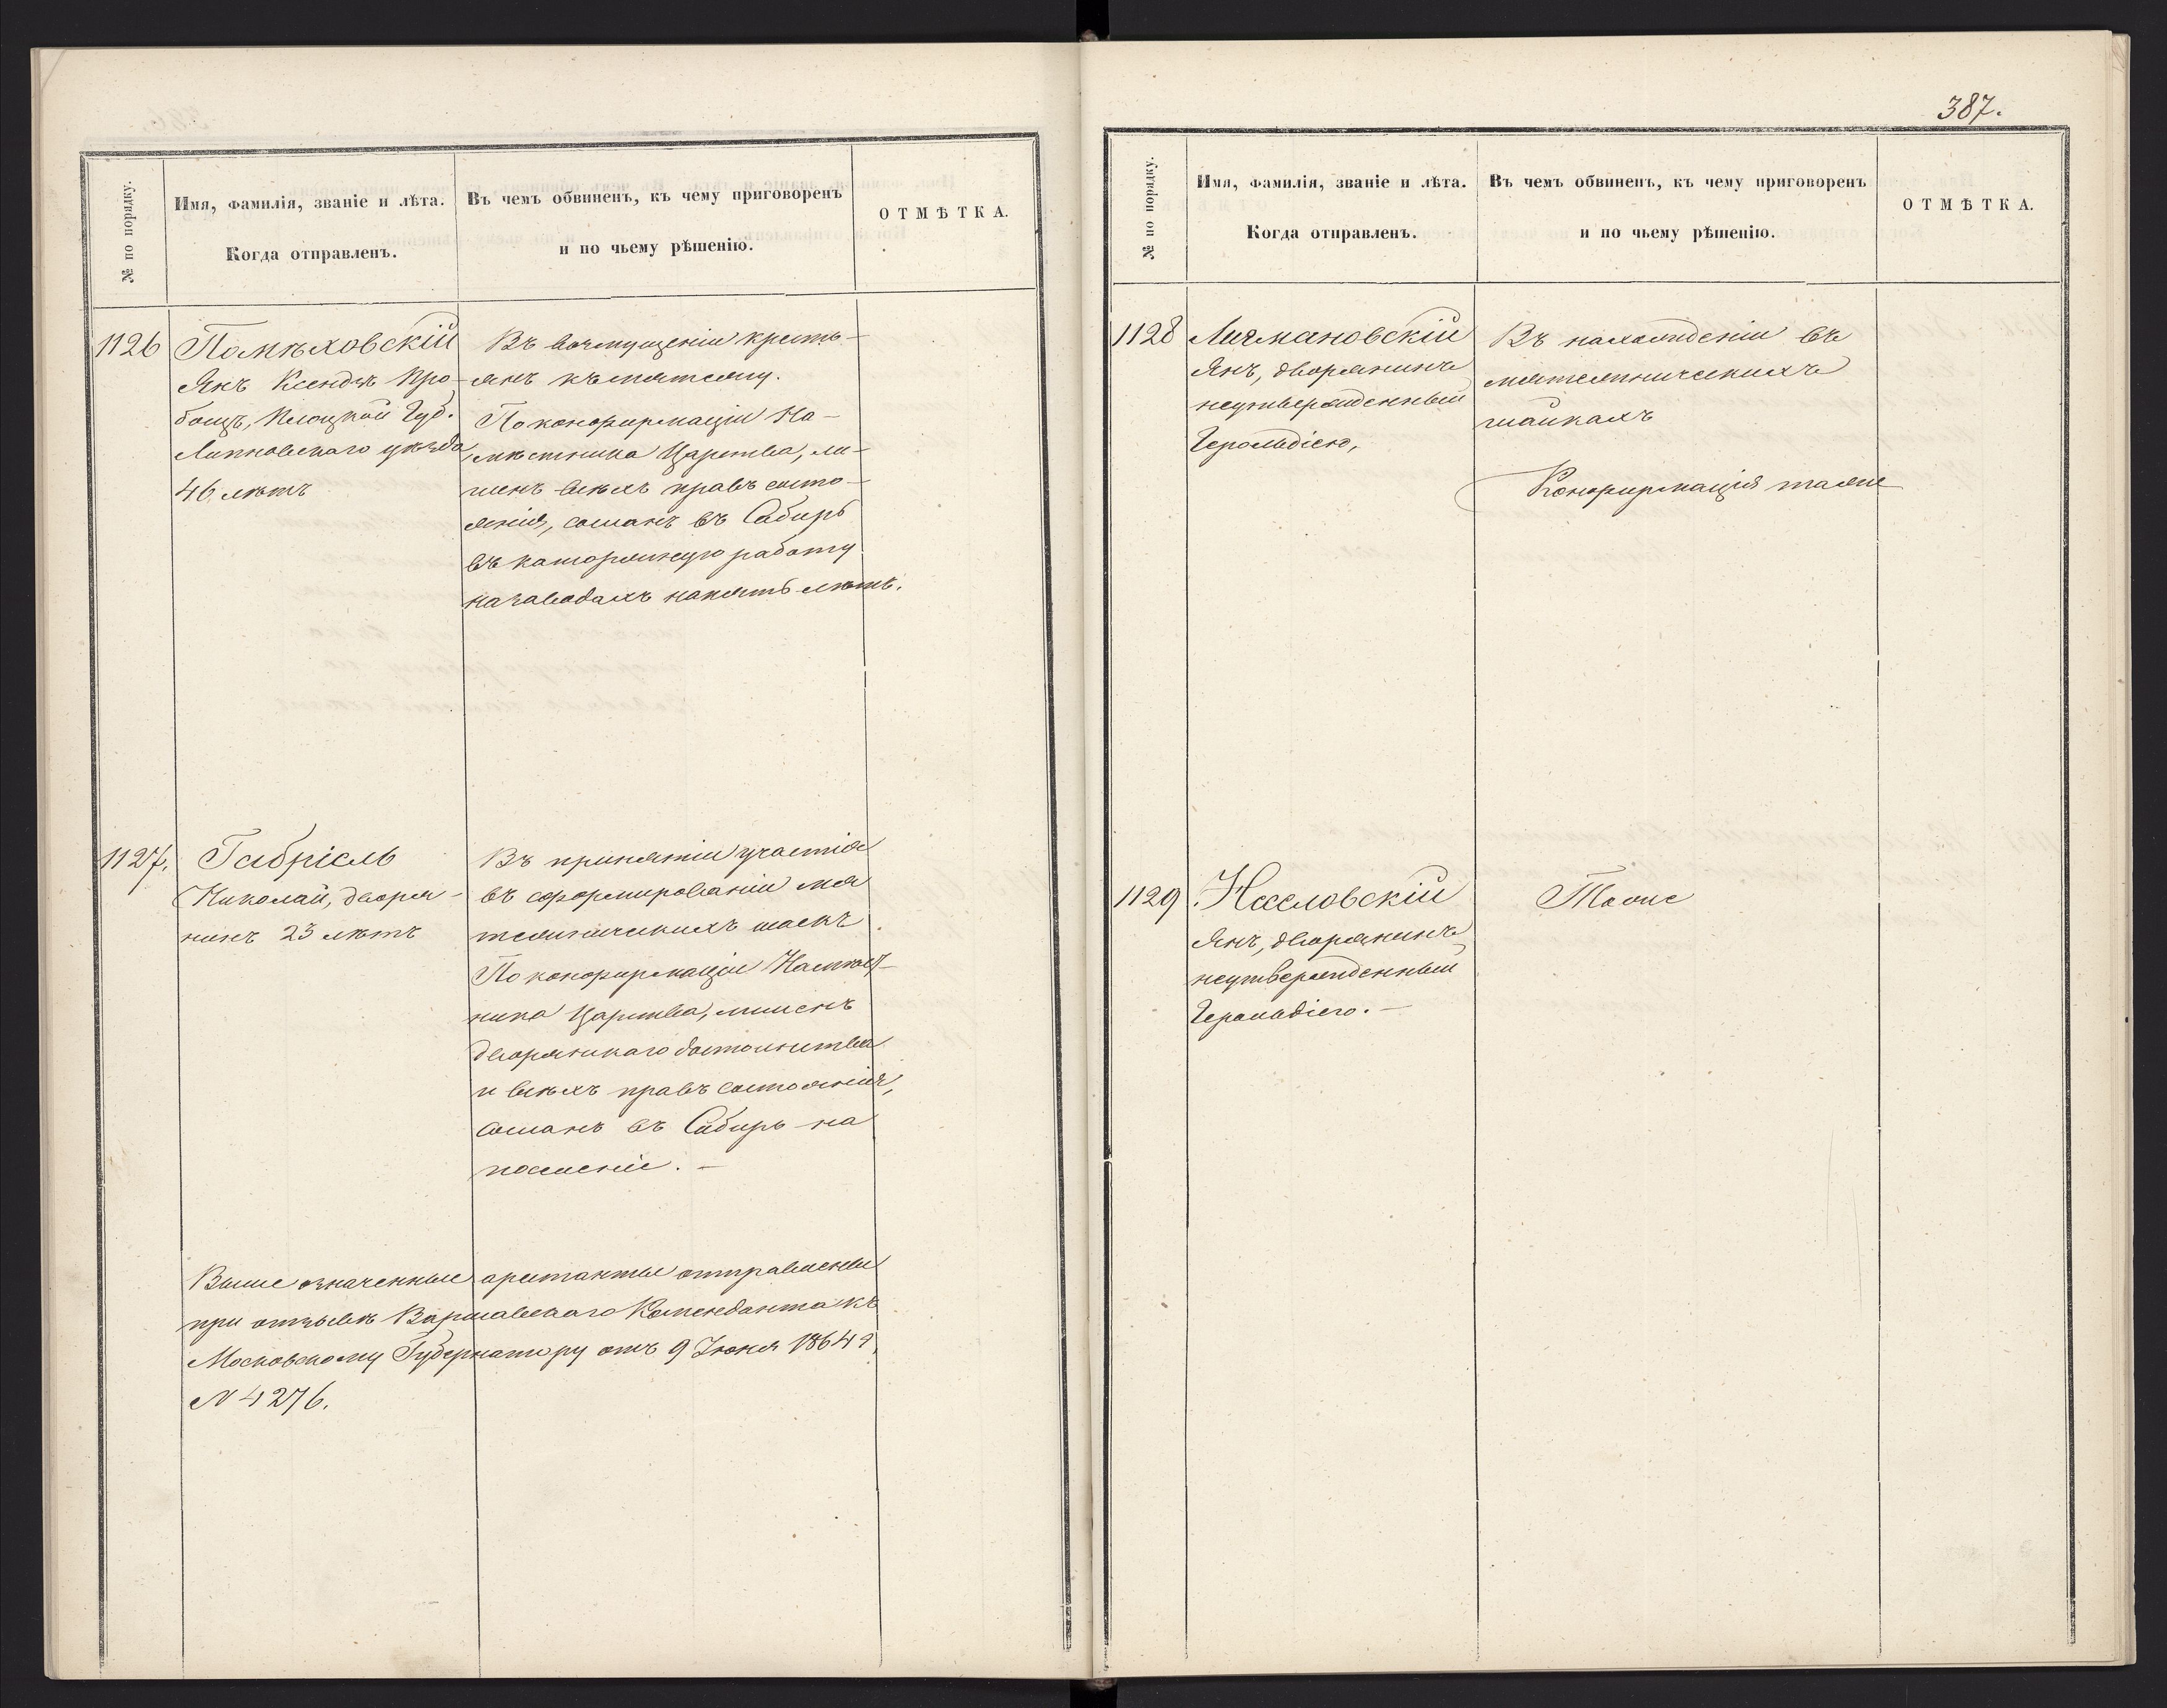 № по порядку.
Имя, фамилія, званіе и лѣта.
Когда отправленъ.
Въ чемъ обвиненъ, къ чему приговоренъ
и по чьему рѣшенію.
ОТМѢТКА.
1126
Помѣховскій
Янъ Ксендзъ Про-
бощъ, Плоцкой Губ.
Липновскаго уѣзда,
46 лѣтъ
Въ возмущеніи кресть-
янъ къ мятежу.
По конфирмаціи На-
мѣстника Царства, ли-
шенъ всѣхъ правъ состо-
янія, сосланъ въ Сибирь
въ каторжную работу
на заводахъ на пять лѣтъ.
1127.
Габріель
Николай, дворя-
нинъ 23 лѣтъ
Въ принятіи участія
въ сформированіи мя
тежническихъ шаекъ
По конфирмаціи Намѣст-
ника Царства, лишенъ
дворянскаго достоинства
и всѣхъ правъ состоянія,
сосланъ въ Сибирь на
поселеніе. —
Выше означенные арестанты отправлены
при отзывѣ Варшавскаго Коменданта къ
Московскому Губернатору отъ 9 Іюня 1864 г.
N 4276.
387.
№ по порядку.
Имя, фамилія, званіе и лѣта.
Когда отправленъ.
Въ чемъ обвиненъ, къ чему приговоренъ
и по чьему рѣшенію.
ОТМѢТКА.
1128
Личмановскій
Янъ, дворянинъ
неутвержденный
Герольдіею,
Въ нахожденіи въ
мятежническихъ
шайкахъ
Конфирмація таже
1129
Янъ, дворянинъ
неутвержденный
Герольдіею. —
Тоже